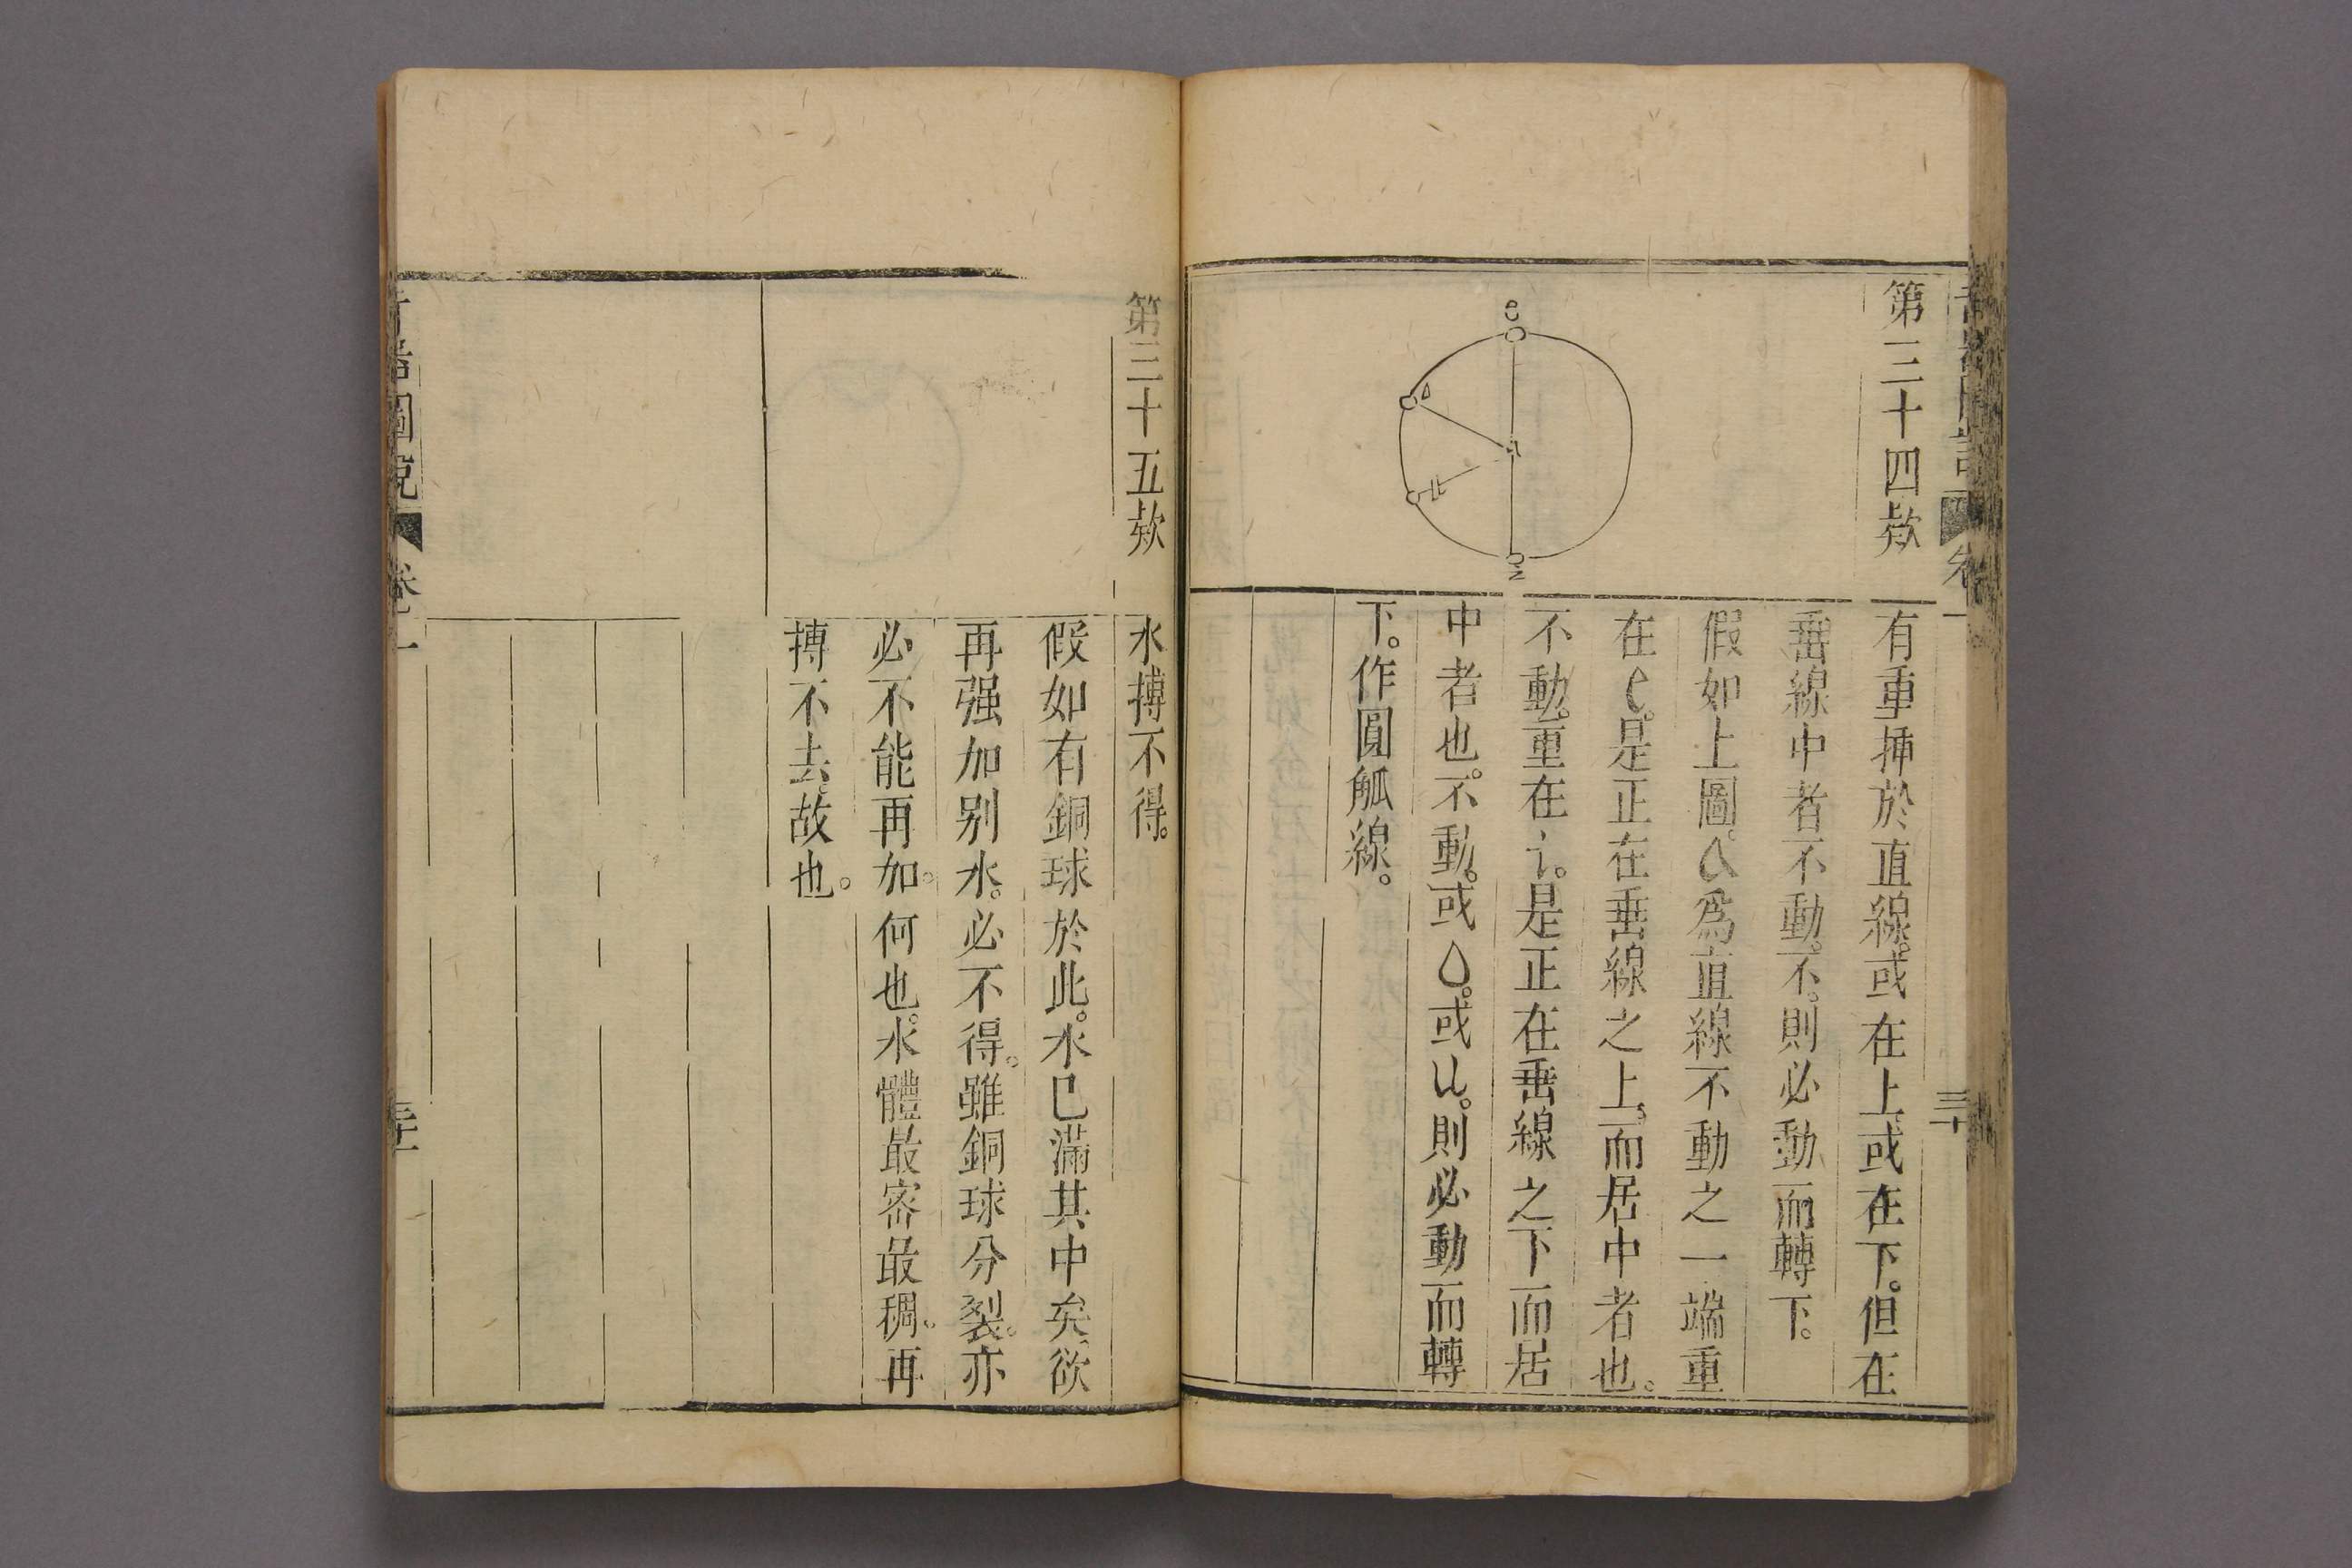 第三十四欵
e
A
N
有重揷於直線。或在上。或在下。但在
垂線中者不動。不。則必動而轉下。
假如上圖。A爲直線不動之一端重
在e。是正在垂線之上。而居中者也。
不動。重在i。是正在垂線之下而居
中者也。不動。或O。或U。則必動而轉
下。作圓觚線。
卷一
三十
第三十五欵
水搏不得。
假如有銅球於此。水已滿其中矣。欲
再强加别水。必不得。雖銅球分裂。亦
必不能再加。何也。水體最密最稠。再
搏不去。故也。
奇器圖說
卷一
三十一